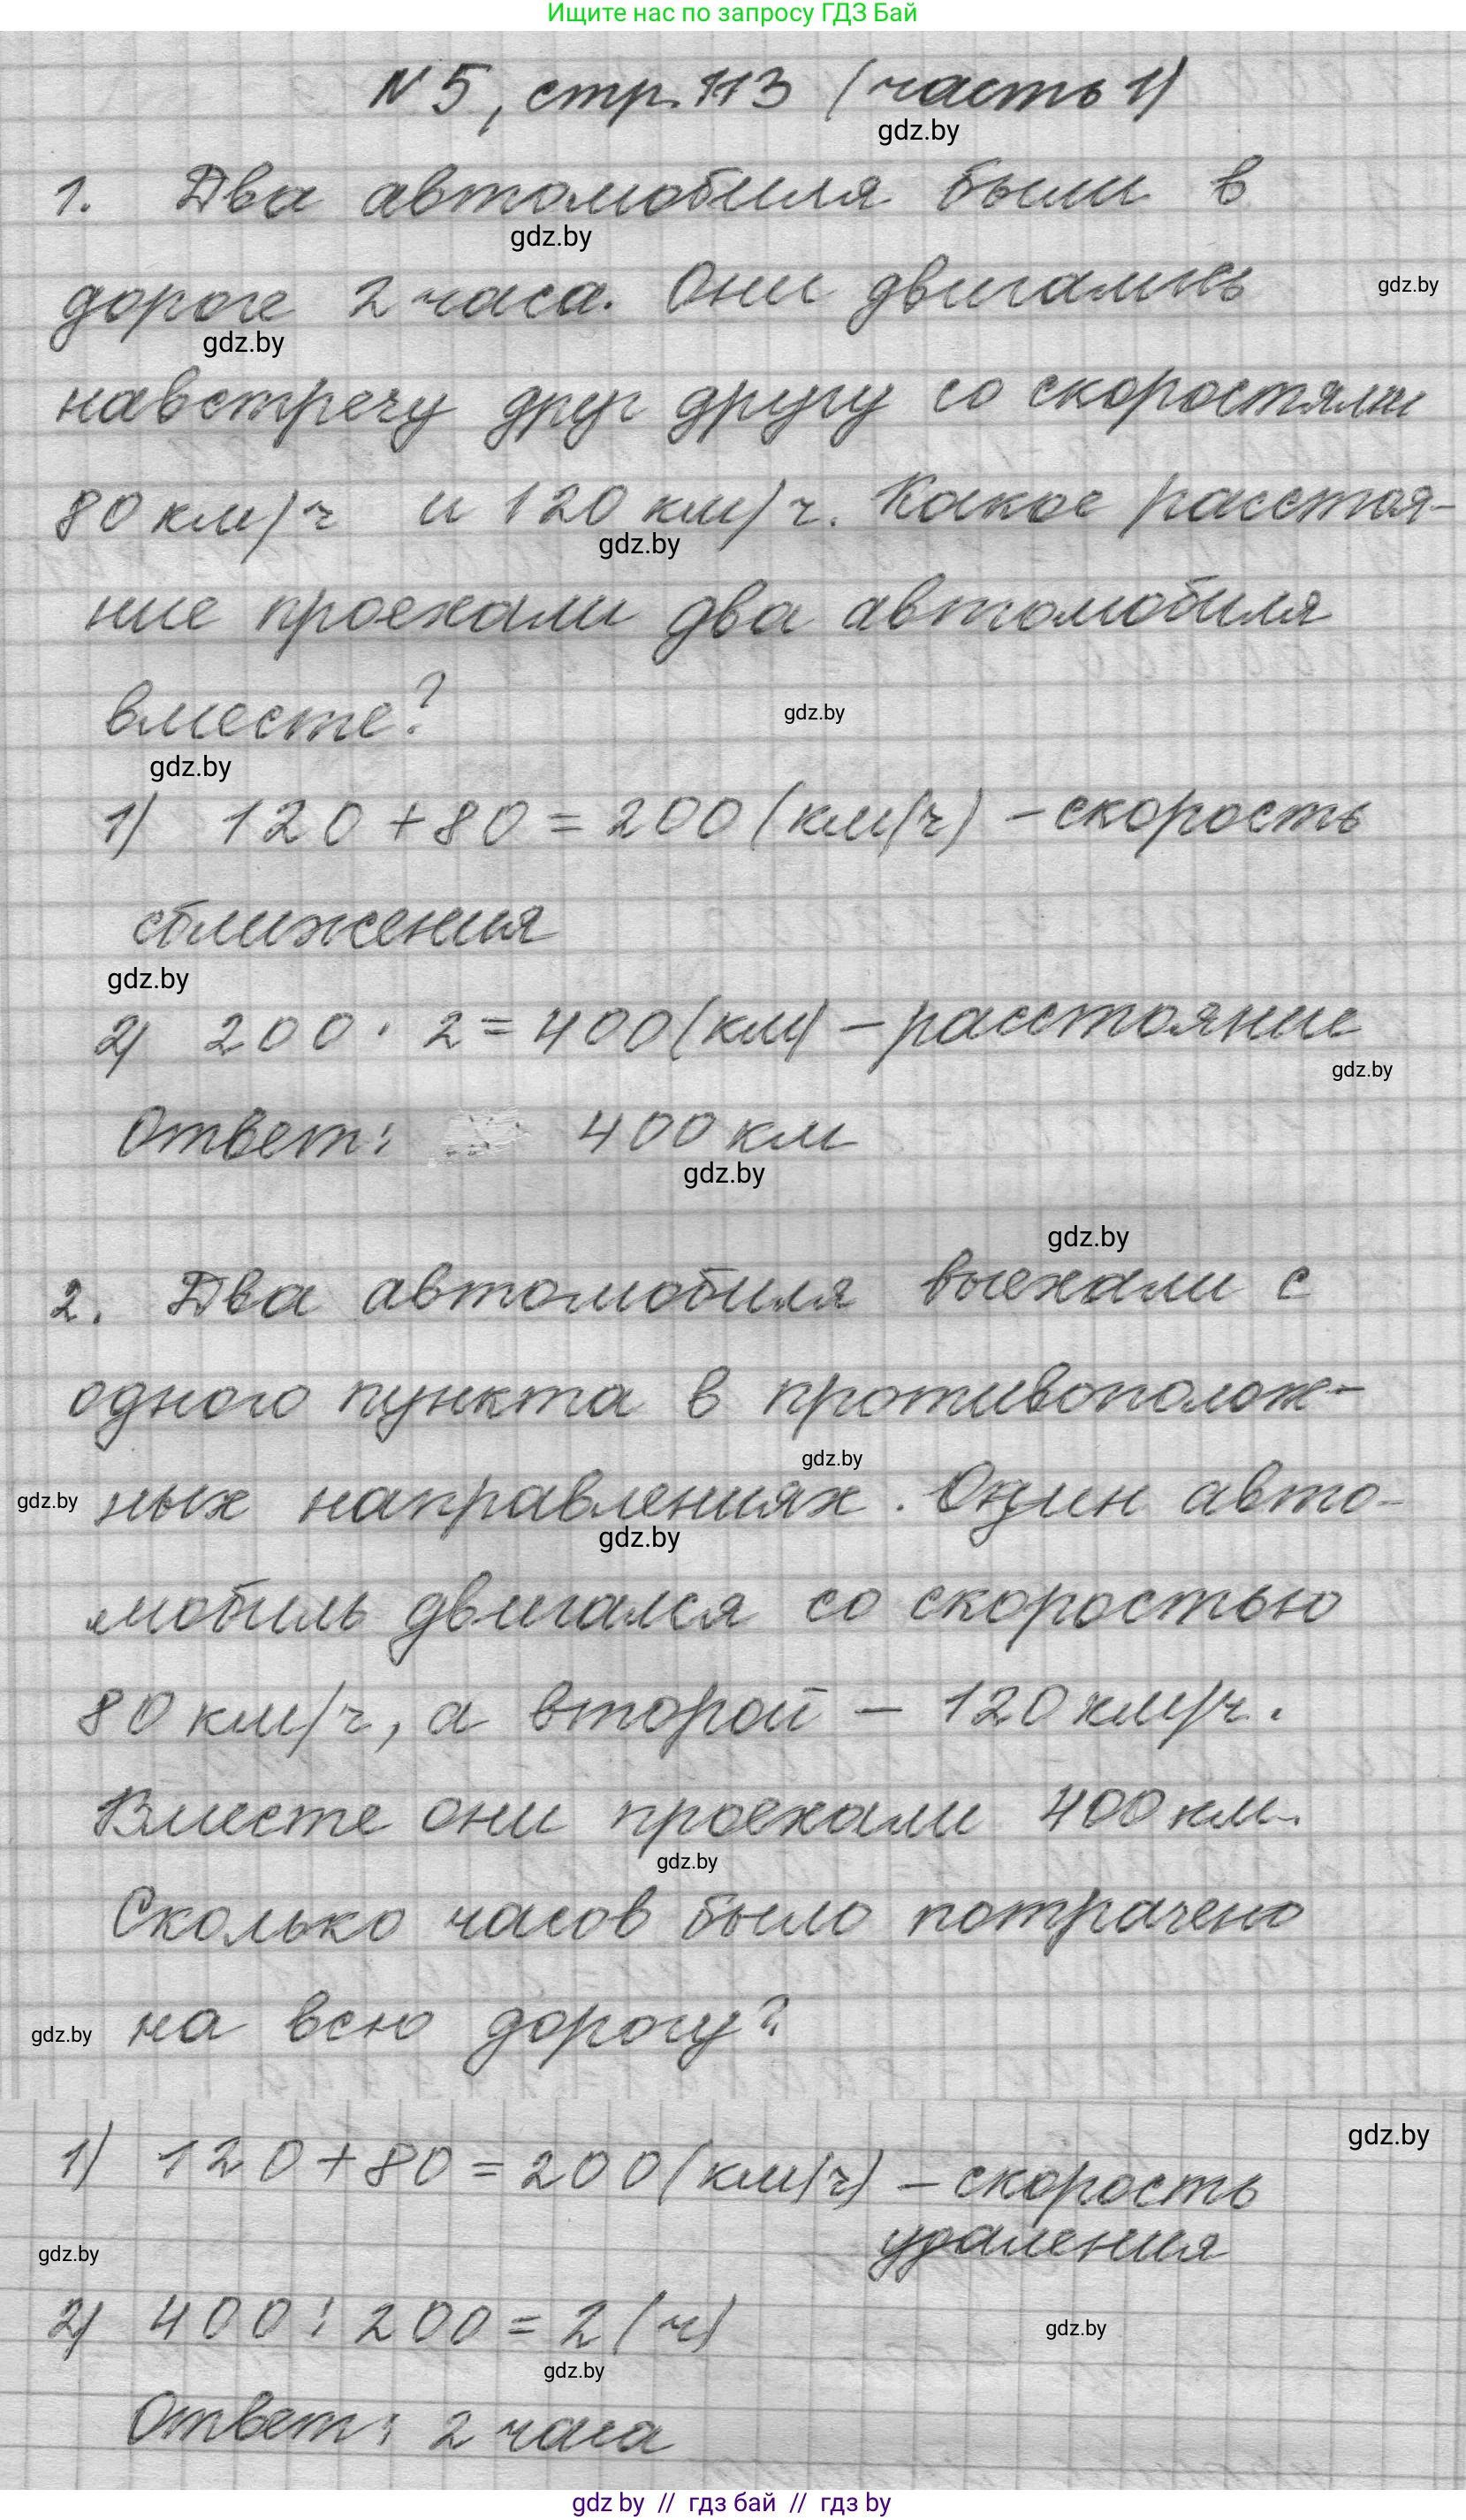 Ищите нас по запросу ГДЗ Бай
№ 5, стр. 113 (часть 1)
gdz.by
1. Два автомобиля были в
gdz.by
дороге 2 часа. Они двигались
gdz.by
gdz.by
навстречу друг другу со скоростями
80 км/ч и 120 км/ч. Какое расстоя-
gdz.by
ние проехали два автомобиля
вместе?
gdz.by
gdz.by
1) 120 + 80 = 200 (км/ч) – скорость
сближения
gdz.by
2) 200 · 2 = 400 (км) – расстояние
gdz.by
Ответ: 400 км
gdz.by
gdz.by
2. Два автомобиля выехали с
одного пункта в противополож-
gdz.by
gdz.by ных направлениях. Один авто-
gdz.by
мобиль двигался со скоростью
80 км/ч, а второй – 120 км/ч.
Вместе они проехали 400 км.
gdz.by
Сколько часов было потрачено
gdz.by на всю дорогу?
gdz.by
1) 120 + 80 = 200 (км/ч) – скорость
удаления
gdz.by
2) 400 : 200 = 2 (ч)
gdz.by
gdz.by
Ответ: 2 часа
gdz by // гдз бай // гдз by